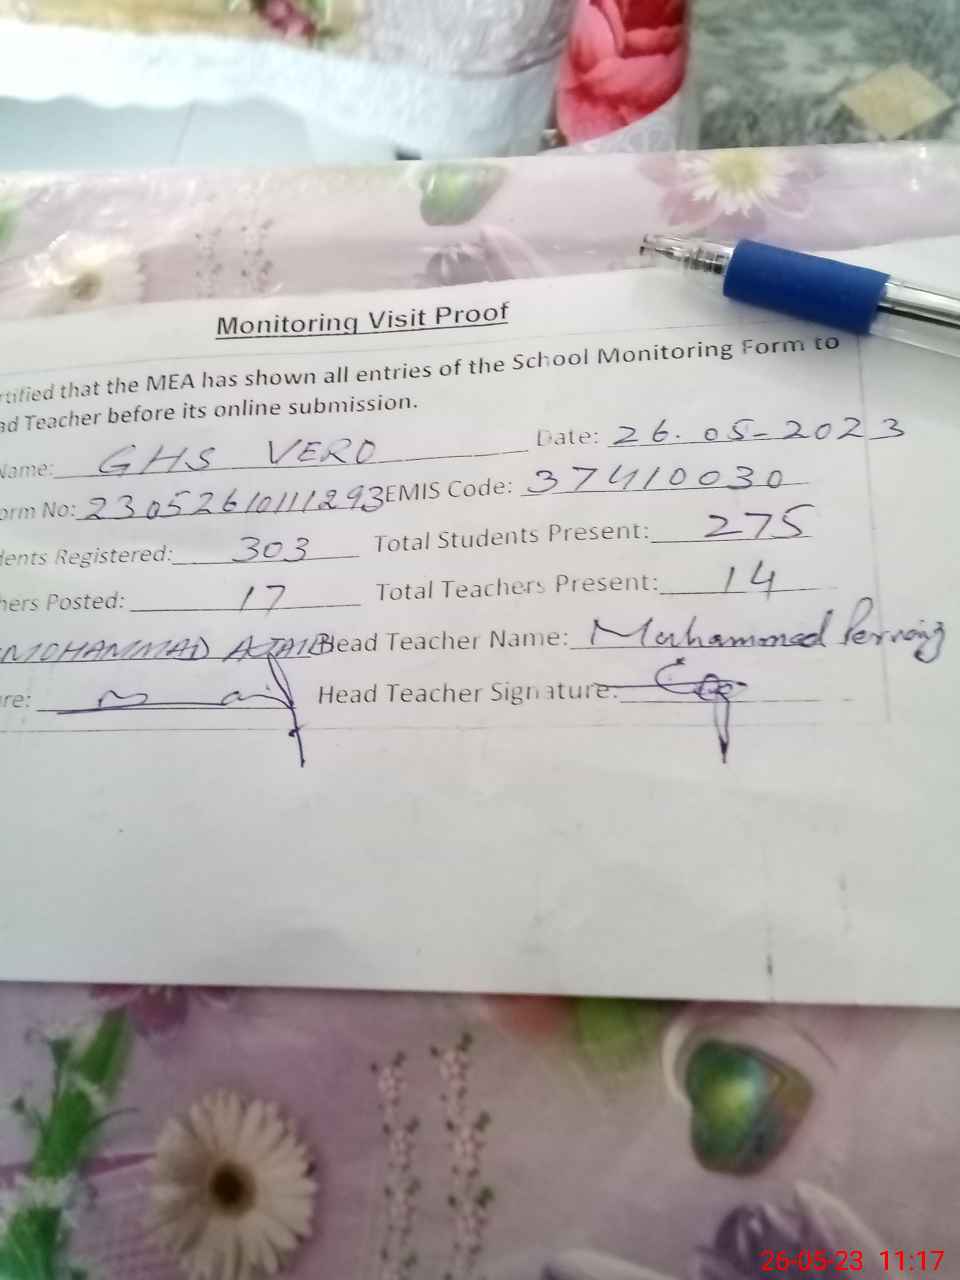 Monitoring Visit Proof
rtified that the MEA has shown all entries of the School Monitoring Form to
ad Teacher before its online submission.
Name: GHS VERO Date: 26.05-2023
orm No: 23052610111293 EMIS Code: 37410030
dents Registered: 303 Total Students Present: 275
hers Posted: 17 Total Teachers Present: 14
MOHAMMAD AJAIB Head Teacher Name: Muhammad Pervaiz
re: Head Teacher Signature:
26-05-23 11:17